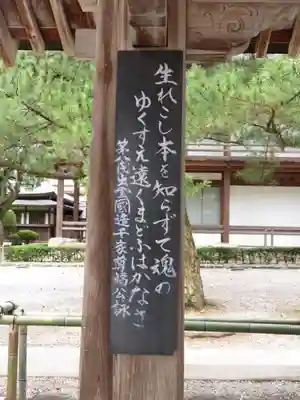 生れこし本を知らずて魂の
ゆくすえ遠くまどふはかなさ
出雲國造千家尊福公詠